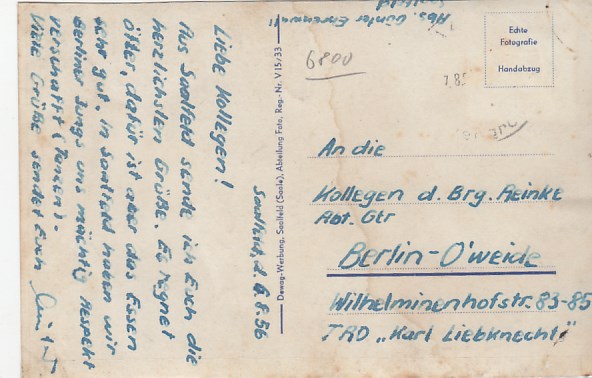 Abs. Günter
Saalfeld, d. 9.8.56
Liebe Kollegen!
Aus Saalfeld sende ich Euch die
herzlichsten Grüße. Es regnet
öfter, dafür ist aber das Essen
sehr gut. In Saalfeld haben wir
Berliner Jungs uns mächtig Respekt
verschafft (Tanzen).-
Viele Grüße sendet Euch
Dewag-Werbung, Saalfeld (Saale), Abteilung Foto, Reg.-Nr. V 15/33
6800
Echte
Fotografie
Handabzug
7.85
An die
Kollegen d. Brg. Reinke
Abt. Gtr
Berlin-O'weide
Wilhelminenhofstr. 83-85
TRO „Karl Liebknecht"